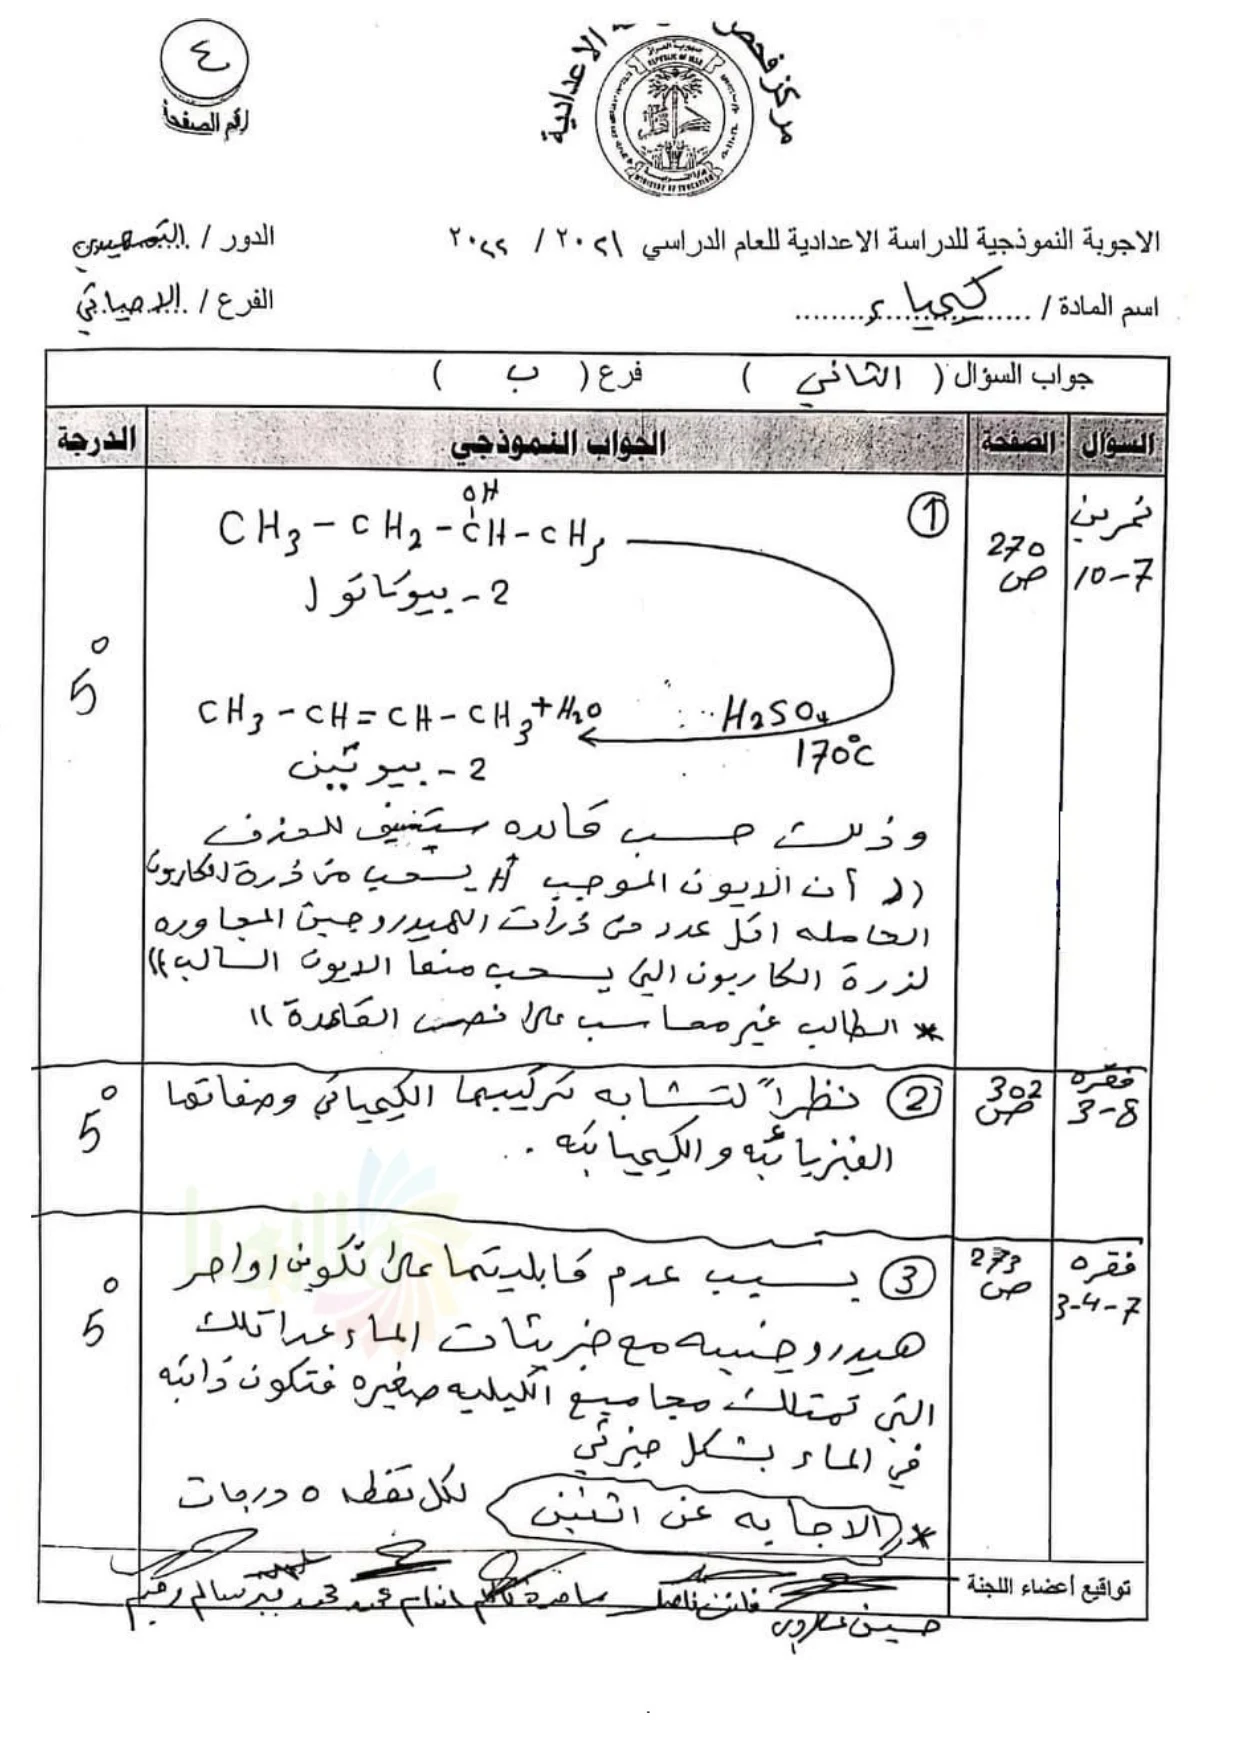 ٤
رقم الصفحة
مركز فحص الاعدادية
جمهورية العراق
REPUBLIC OF IRAQ
وزارة التربية
MINISTRY OF EDUCATION
الاجوبة النموذجية للدراسة الاعدادية للعام الدراسي ٢٠٢١ / ٢٠٢٢
الدور / التمهيدي
اسم المادة / كيمياء
الفرع / الاحيائي
جواب السؤال ( الثاني ) فرع ( ب )
السؤال الصفحة الجواب النموذجي الدرجة
تمرين
10-7
270
ص
①
OH
CH3 - CH2 - CH - CH3
2 - بيوتانول
H2SO4
170°C
CH3 - CH = CH - CH3 + H2O
2 - بيوتين
5°
وذلك حسب قاعده سيتزيف للحذف
(( أن الايون الموجب H+ يسحب من ذرة الكاربون
الحامله اقل عدد من ذرات الهيدروجين المجاوره
لذرة الكاربون التي يسحب منها الايون السالب ))
* الطالب غير محاسب على نص القاعدة ))
فقره
3-8
302
ص
② نظراً لتشابه تركيبهما الكيميائي وصفاتها
الفيزيائيه والكيميائيه .
5°
فقره
3-4-7
273
ص
③ بسبب عدم قابليتها على تكوين اواصر
هيدروجينيه مع جزيئات الماء عدا تلك
التي تمتلك مجاميع الكيليه صغيره فتكون ذائبه
في الماء بشكل جزئي
5°
* (الاجابه عن اثنين) لكل نقطه ٥ درجات
تواقيع أعضاء اللجنة